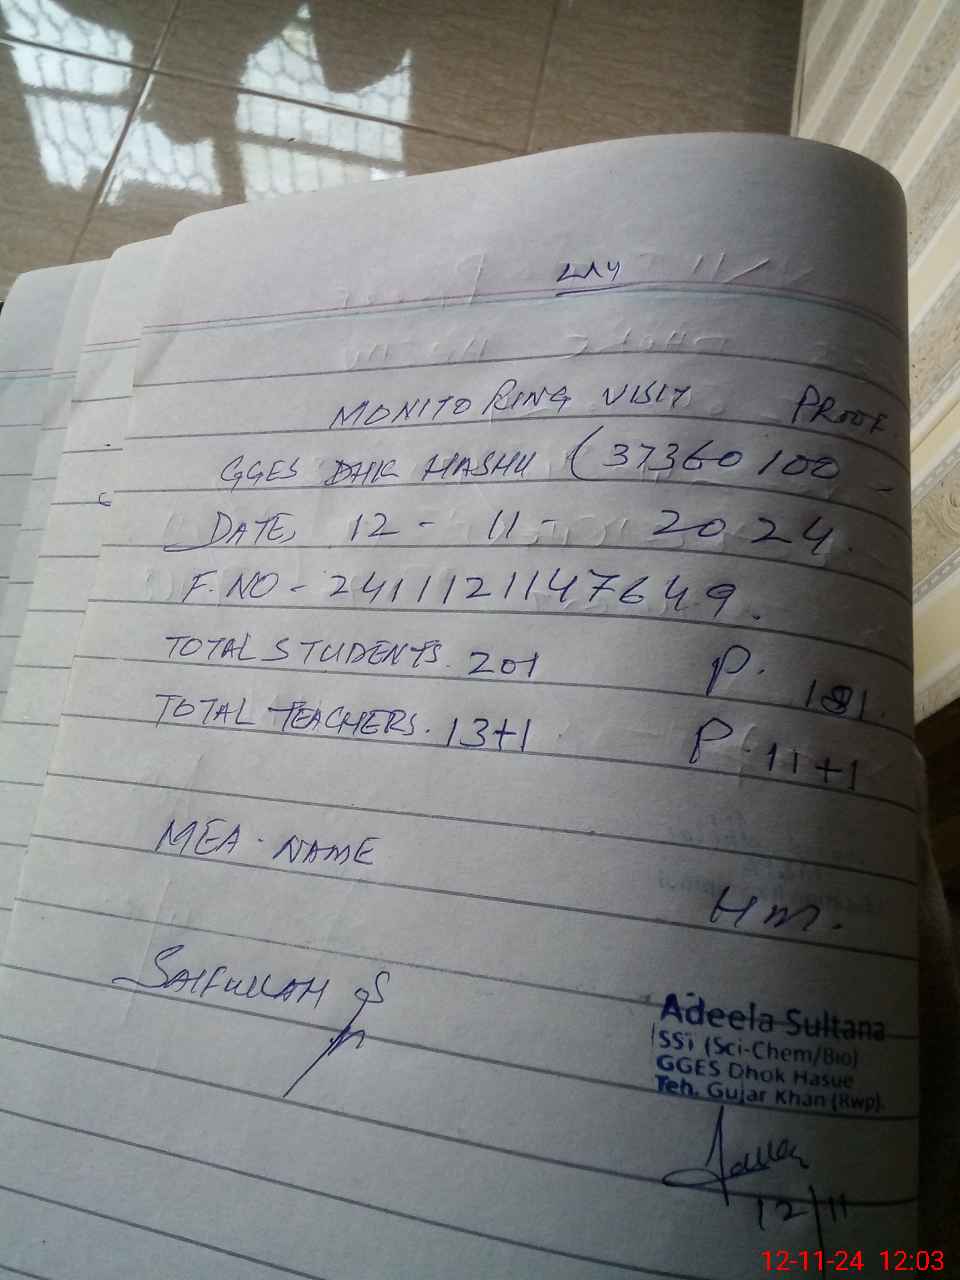 MONITORING VISIT PROOF
GGES DHK HASHU (37360100
DATE, 12 - 11 - 2024.
F.NO - 2411121147649.
TOTAL STUDENTS. 201 P. 181.
TOTAL TEACHERS. 13+1 P. 11+1
MEA. NAME
HM.
SAIFULLAH
Adeela Sultana
SSi (Sci-Chem/Bio)
GGES Dhok Hasue
Teh. Gujar Khan (Rwp).
12/11
12-11-24 12:03